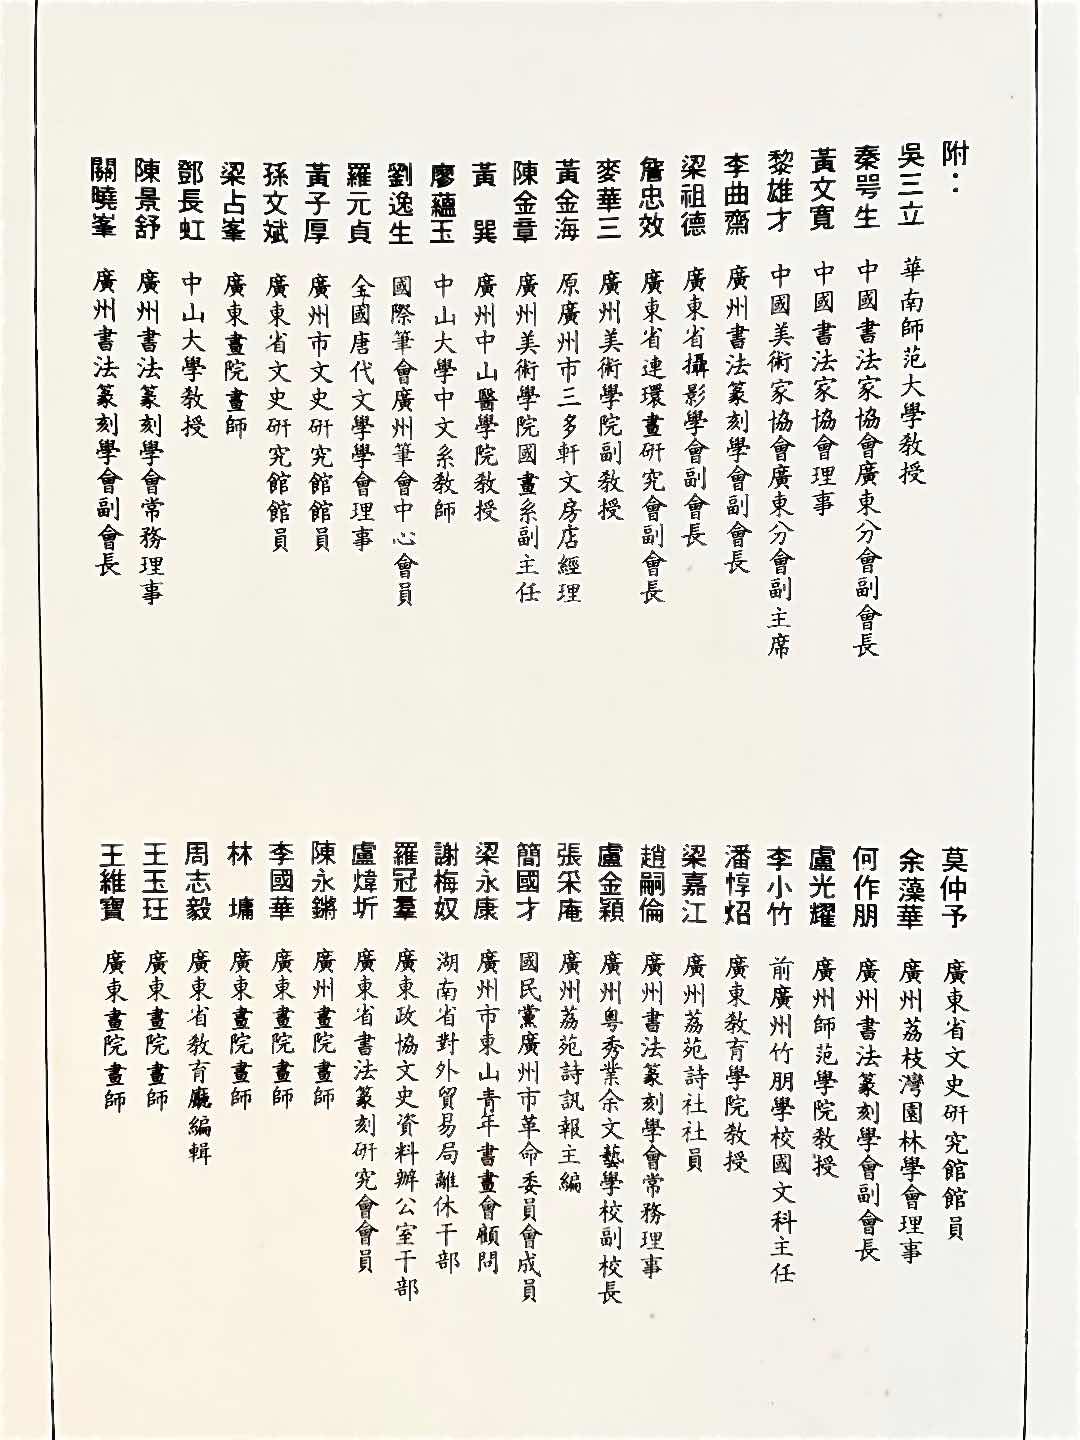 附：
吳三立　華南師范大學教授
秦咢生　中國書法家協會廣東分會副會長
黃文寬　中國書法家協會理事
黎雄才　中國美術家協會廣東分會副主席
李曲齋　廣州書法篆刻學會副會長
梁祖德　廣東省攝影學會副會長
詹忠效　廣東省連環畫研究會副會長
麥華三　廣州美術學院副教授
黃金海　原廣州市三多軒文房店經理
陳金章　廣州美術學院國畫系副主任
黃　巽　廣州中山醫學院教授
廖蘊玉　中山大學中文系教師
劉逸生　國際筆會廣州筆會中心會員
羅元貞　全國唐代文學學會理事
黃子厚　廣州市文史研究館館員
孫文斌　廣東省文史研究館館員
梁占峯　廣東畫院畫師
鄧長虹　中山大學教授
陳景舒　廣州書法篆刻學會常務理事
關曉峯　廣州書法篆刻學會副會長
莫仲予　廣東省文史研究館館員
余藻華　廣州荔枝灣園林學會理事
何作朋　廣州書法篆刻學會副會長
盧光耀　廣州師范學院教授
李小竹　前廣州竹朋學校國文科主任
潘惇炤　廣東教育學院教授
梁嘉江　廣州荔苑詩社社員
趙嗣倫　廣州書法篆刻學會常務理事
盧金穎　廣州粤秀業余文藝學校副校長
張采庵　廣州荔苑詩訊報主編
簡國才　國民黨廣州市革命委員會成員
梁永康　廣州市東山青年書畫會顧問
謝梅奴　湖南省對外貿易局離休干部
羅冠羣　廣東政協文史資料辦公室干部
盧煒圻　廣東省書法篆刻研究會會員
陳永鏘　廣州畫院畫師
李國華　廣東畫院畫師
林　墉　廣東畫院畫師
周志毅　廣東省教育廳編輯
王玉玨　廣東畫院畫師
王維寶　廣東畫院畫師